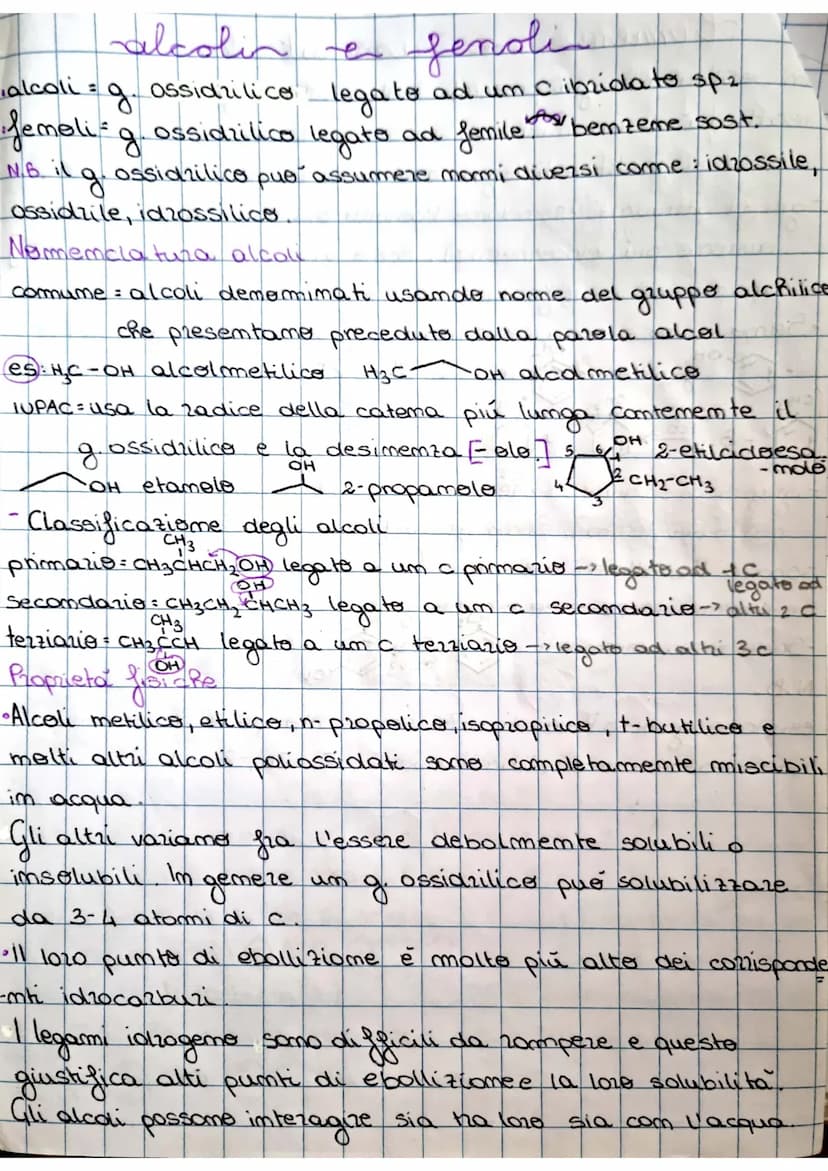 alcolin e fenolin
.alcoli = g. ossidrilico legato ad un c ibridato sp2
.fenoli = g. ossidrilico legato ad fenile benzene sost.
N.B il g. ossidrilico puó assumere nomi diversi come : idrossile,
ossidrile, idrossilico.
Nomenclatura alcoli
comune = alcoli denominati usando nome del gruppo alchilico
che presentano preceduto dalla parola alcol
es: H3C-OH alcolmetilico H3C OH alcolmetilico
IUPAC = usa la radice della catena piú lunga contenente il
g. ossidrilico e la desinenza [-olo.] 5 6 1 OH 2-etilcicloesa
-nolo
OH etanolo OH 2-propanolo 4 3 2 CH2-CH3
- Classificazione degli alcoli
primario = CH3CHCH2OH legato a un c primario -> legato ad 1C
CH3
legato ad
secondario = CH3CH2CHCH3 legato a un c secondario -> altri 2 C
OH
terziario = CH3CCH legato a un c terziario -> legato ad altri 3c
CH3
OH
Proprietá fisiche
•Alcoli metilico, etilico, n-propolico, isopropilico, t-butilico e
molti altri alcoli poliossidati sono completamente miscibili
in acqua.
Gli altri variano fra l'essere debolmente solubili o
insolubili. In genere un g. ossidrilico puó solubilizzare
da 3-4 atomi di c.
•Il loro punto di ebollizione é molto piú alto dei corrisponde
-nti idrocarburi.
I legami idrogeno sono difficili da rompere e questo
giustifica alti punti di ebollizione e la loro solubilitá.
Gli alcoli possono interagire sia tra loro sia con l'acqua.